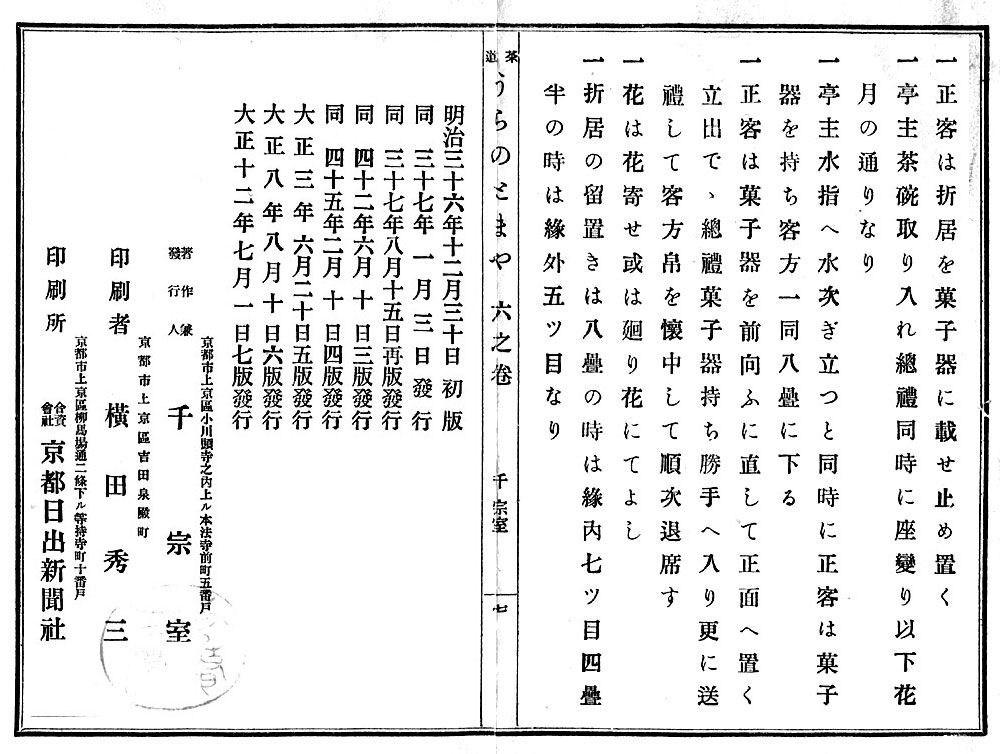 一正客は折居を菓子器に載せ止め置く
一亭主茶碗取り入れ總禮同時に座變り以下花
月の通りなり
一亭主水指へ水次ぎ立つと同時に正客は菓子
器を持ち客方一同八疊に下る
一正客は菓子器を前向ふに直して正面へ置く
立出でヽ總禮菓子器持ち勝手へ入り更に送
禮して客方帛を懷中して順次退席す
一花は花寄せ或は廻り花にてよし
一折居の留置きは八疊の時は緣內七ツ目四疊
半の時は緣外五ツ目なり
茶道
うらのとまや 六之卷
千宗室
七
明治三十六年十二月三十日 初版
同 三十七年 一月三日 發行
同 三十七年八月十五日再版發行
同 四十二年六月十日三版發行
同 四十五年二月十日四版發行
大正三年六月二十日五版發行
大正八年八月十日六版發行
大正十二年七月一日七版發行
京都市上京區小川頭寺之內上ル本法寺前町五番戶
著作兼發行人 千宗室
京都市上京區吉田泉殿町
印刷者 橫田秀三
京都市上京區柳馬場通二條下ル等持寺町十番戶
印刷所 合資會社 京都日出新聞社